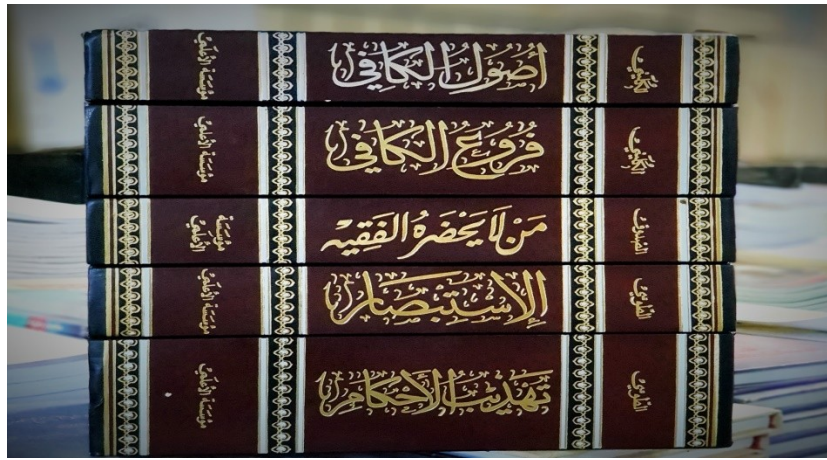 الكليني أُصُولُ الكَافِي مؤسسة الأعلمي
الكليني فُرُوعُ الكَافِي مؤسسة الأعلمي
الصدوق مَنْ لَا يَحْضَرُهُ الفَقِيه مؤسسة الأعلمي
الطوسي الإِسْتِبْصَار مؤسسة الأعلمي
الطوسي تَهْذِيبُ الأَحْكَام مؤسسة الأعلمي